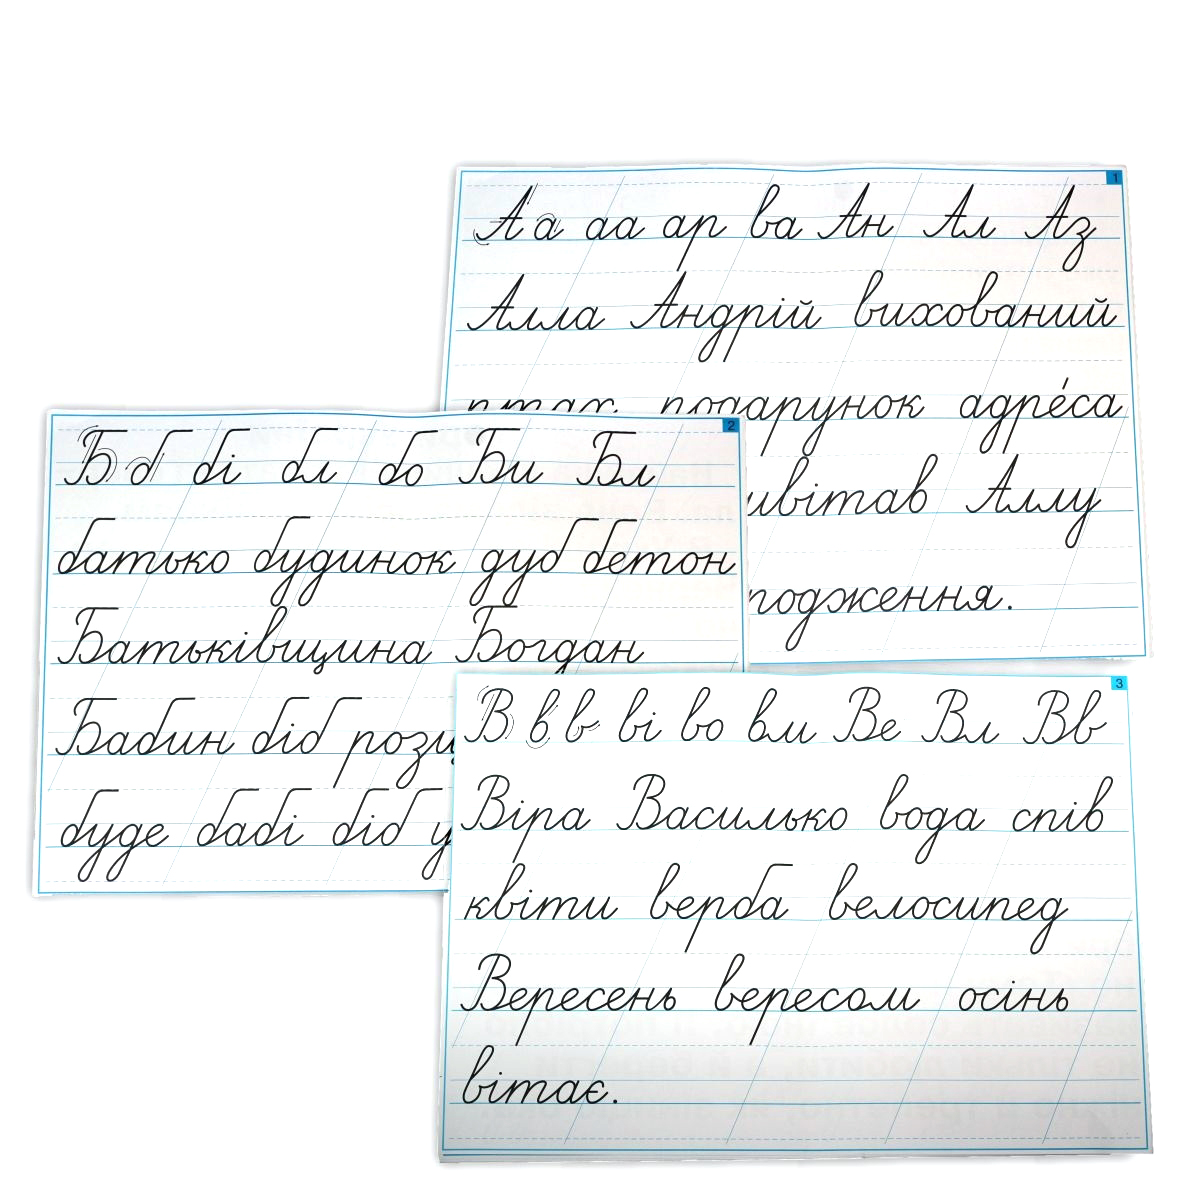 1
Аа аа ар ва Ан Ал Аз
Алла Андрій вихований
птах подарунок адре́са
Аллу
2
Б б бі бл бо Би Бл
батько будинок дуб бетон
Батьківщина Богдан
Бабин біб
буде бабі біб у
3
В в в ві во вм Ве Вл Вв
Віра Василько вода спів
квіти верба велосипед
Вересень вересом осінь
вітає.